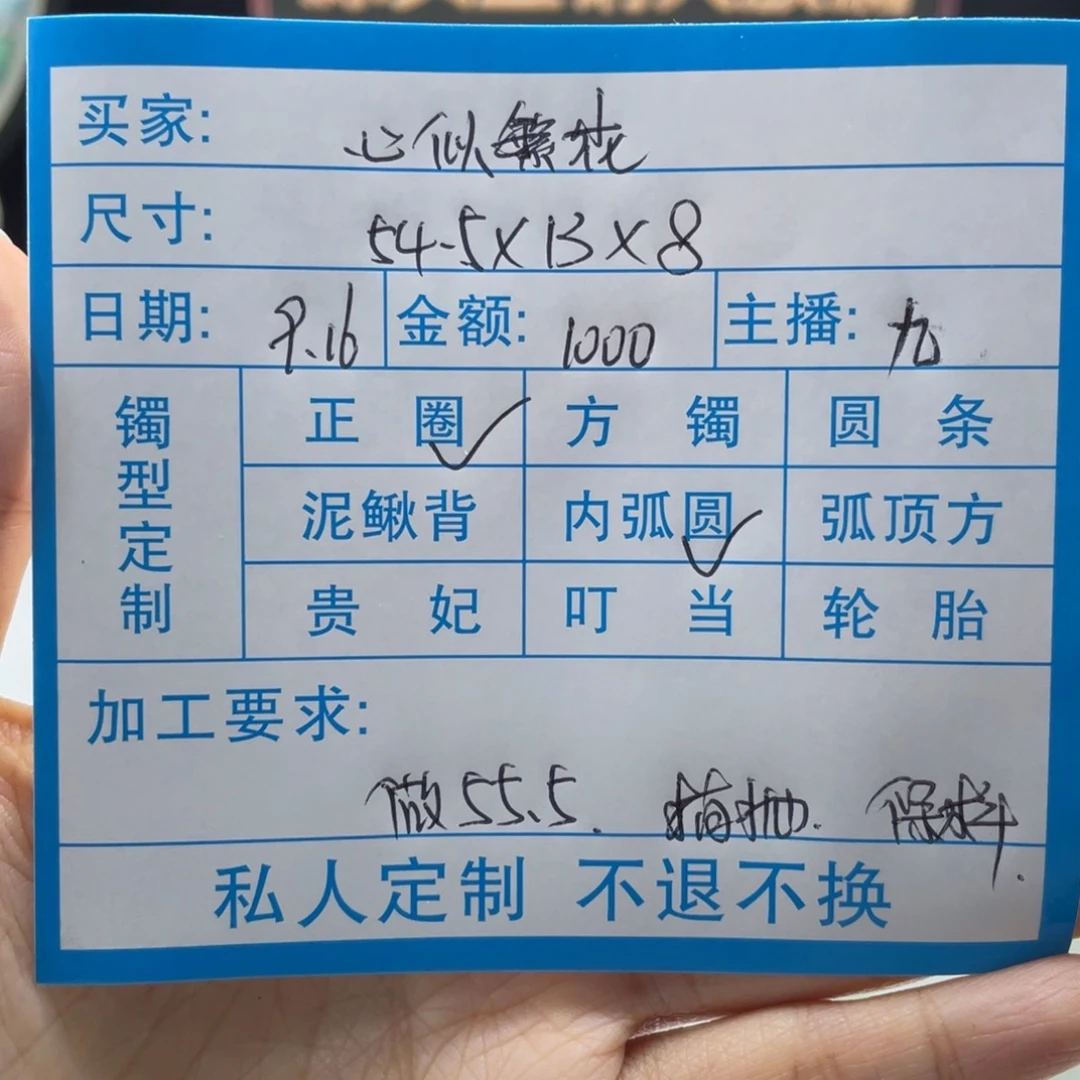 买家: 心似繁花
尺寸: 54.5X13X8
日期: 9.16 金额: 1000 主播: 九
镯型定制
正圈✓ 方镯 圆条
泥鳅背 内弧圆✓ 弧顶方
贵妃 叮当 轮胎
加工要求:
做55.5. 精抛. 保料.
私人定制 不退不换